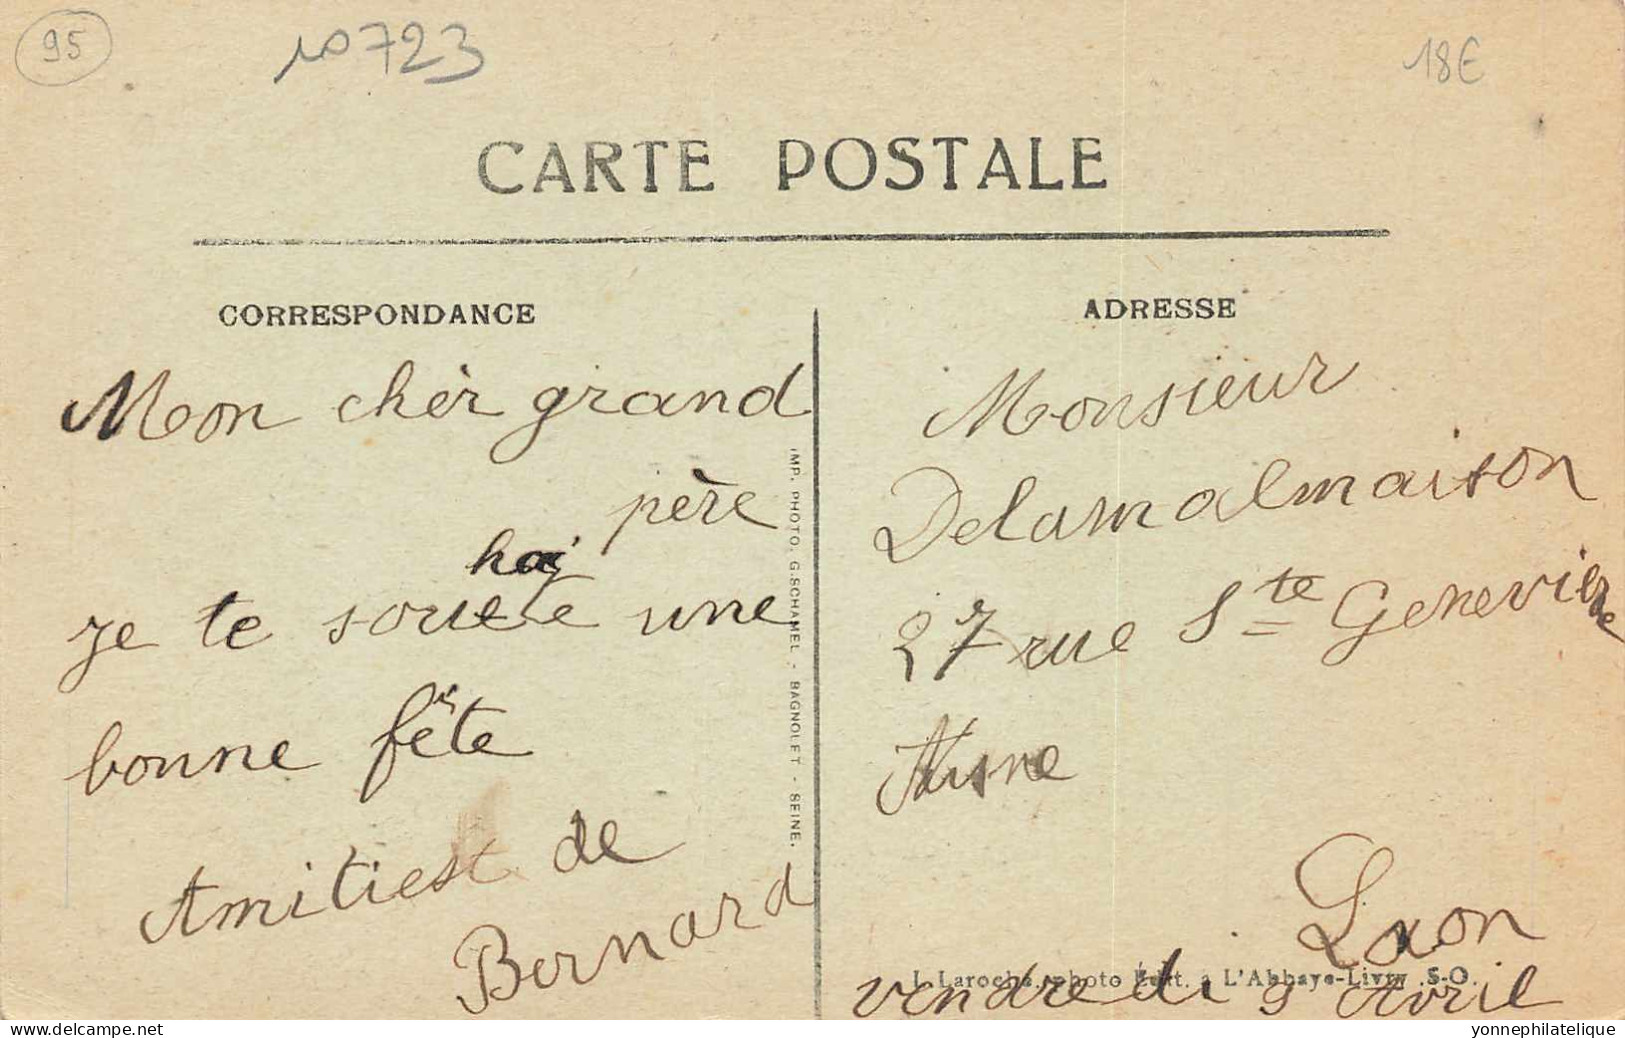 95
10723
18€
CARTE POSTALE
CORRESPONDANCE
ADRESSE
Mon chèr grand
père
hai
je te soute une
bonne fête
Amitiest de
Bernard
IMP. PHOTO. G. SCHAMEL - BAGNOLET - SEINE.
Monsieur
Delamalmaison
27 rue Ste Geneviève
Aisne
Laon
L. Laroche, photo Édit. à L'Abbaye-Livry .S-O.
vendredi 9 Avril
yonnephilatelique